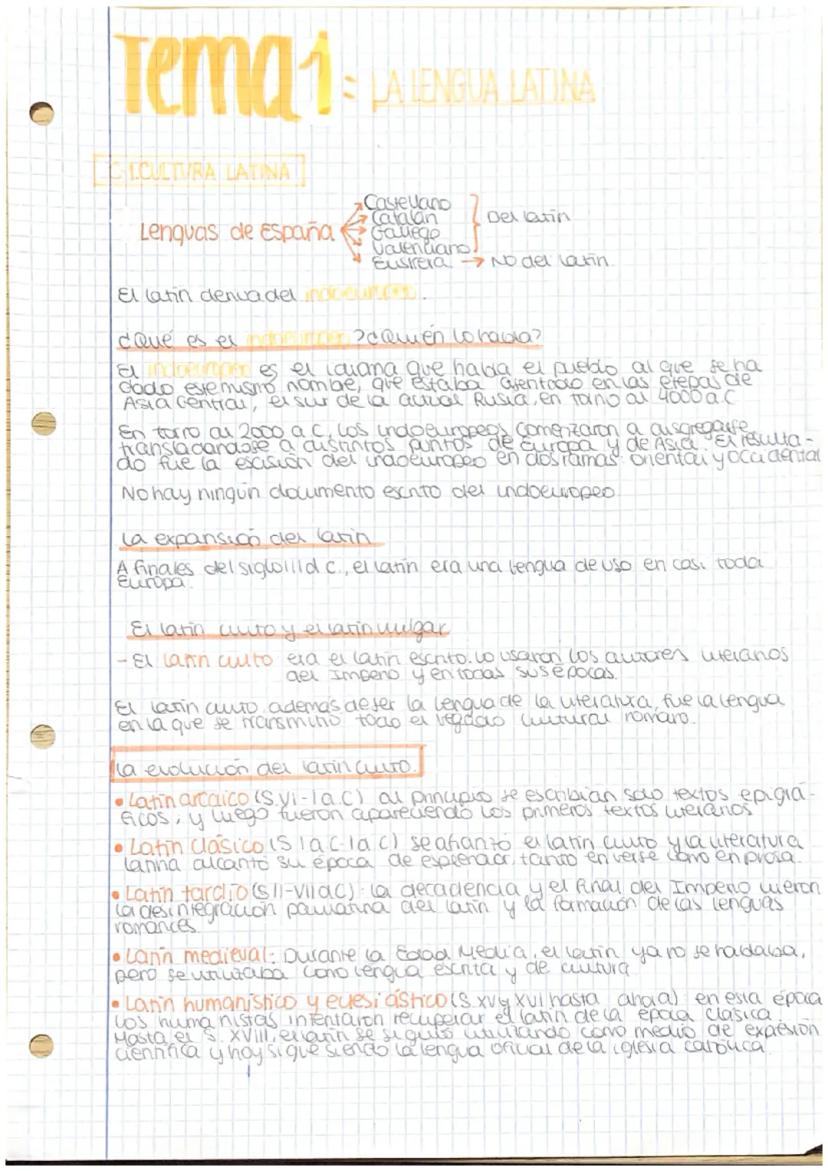 Tema 1: LA LENGUA LATINA
CULTURA LATINA
Castellano
Catalán
Lenguas de España Gallego Del latín
Valenciano
Euskera → No del latín.
El latín deriva del indoeuropeo.
¿Qué es el indoeuropeo? ¿Quién lo habla?
El indoeuropeo es el idioma que habla el pueblo al que se ha
dado este mismo nombre, que estaba asentado en las etepas de
Asia Central, el sur de la actual Rusia, en torno al 4000 a.C
En torno al 2000 a.C, los indoeuropeos comenzaron a disgregarse,
transladandose a distintos puntos de Europa y de Asia. El resulta-
do fue la escisión del indoeuropeo en dos ramas: oriental y occidental
No hay ningún documento escrito del indoeuropeo.
La expansión del latín
A finales del siglo III d.C., el latín era una lengua de uso en casi toda
Europa.
El latín culto y el latín vulgar
- El latín culto era el latín escrito. Lo usaron los autores literarios
del Imperio y en todas sus épocas.
El latín culto, además de ser la lengua de la literatura, fue la lengua
en la que se transmitió todo el legado cultural romano.
La evolución del latín culto.
• Latín arcaico (S.VI-I a.C) al principio se escribían solo textos epigrá-
ficos, y luego fueron apareciendo los primeros textos literarios
• Latín Clásico (S I a.C-I a.C) se afianzó el latín culto y la literatura
latina alcanzó su época de esplendor, tanto en verse como en prosa.
• Latín tardío (S II-VII d.C): la decadencia y el final del Imperio
la desintegración paulatina del latín y la formación de las lenguas
romances.
• Latín medieval: Durante la Edad Media, el latín ya no se hablaba,
pero se utilizaba como lengua escrita y de cultura
• Latín humanístico y eclesiástico (S. XV y XVI hasta ahora) en esta época
los humanistas intentaron recuperar el latín de la época clásica.
Hasta el S. XVIII, el latín se siguió utilizando como medio de expresión
científica y hoy sigue siendo la lengua oficial de la iglesia católica.